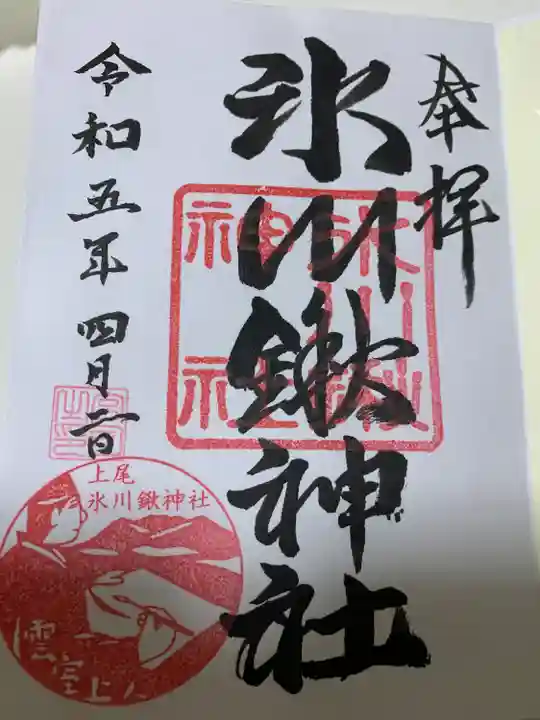 奉拝
氷川鍬神社
氷川鍬
神社
令和五年四月二日
上尾
氷川鍬神社
雲室上人